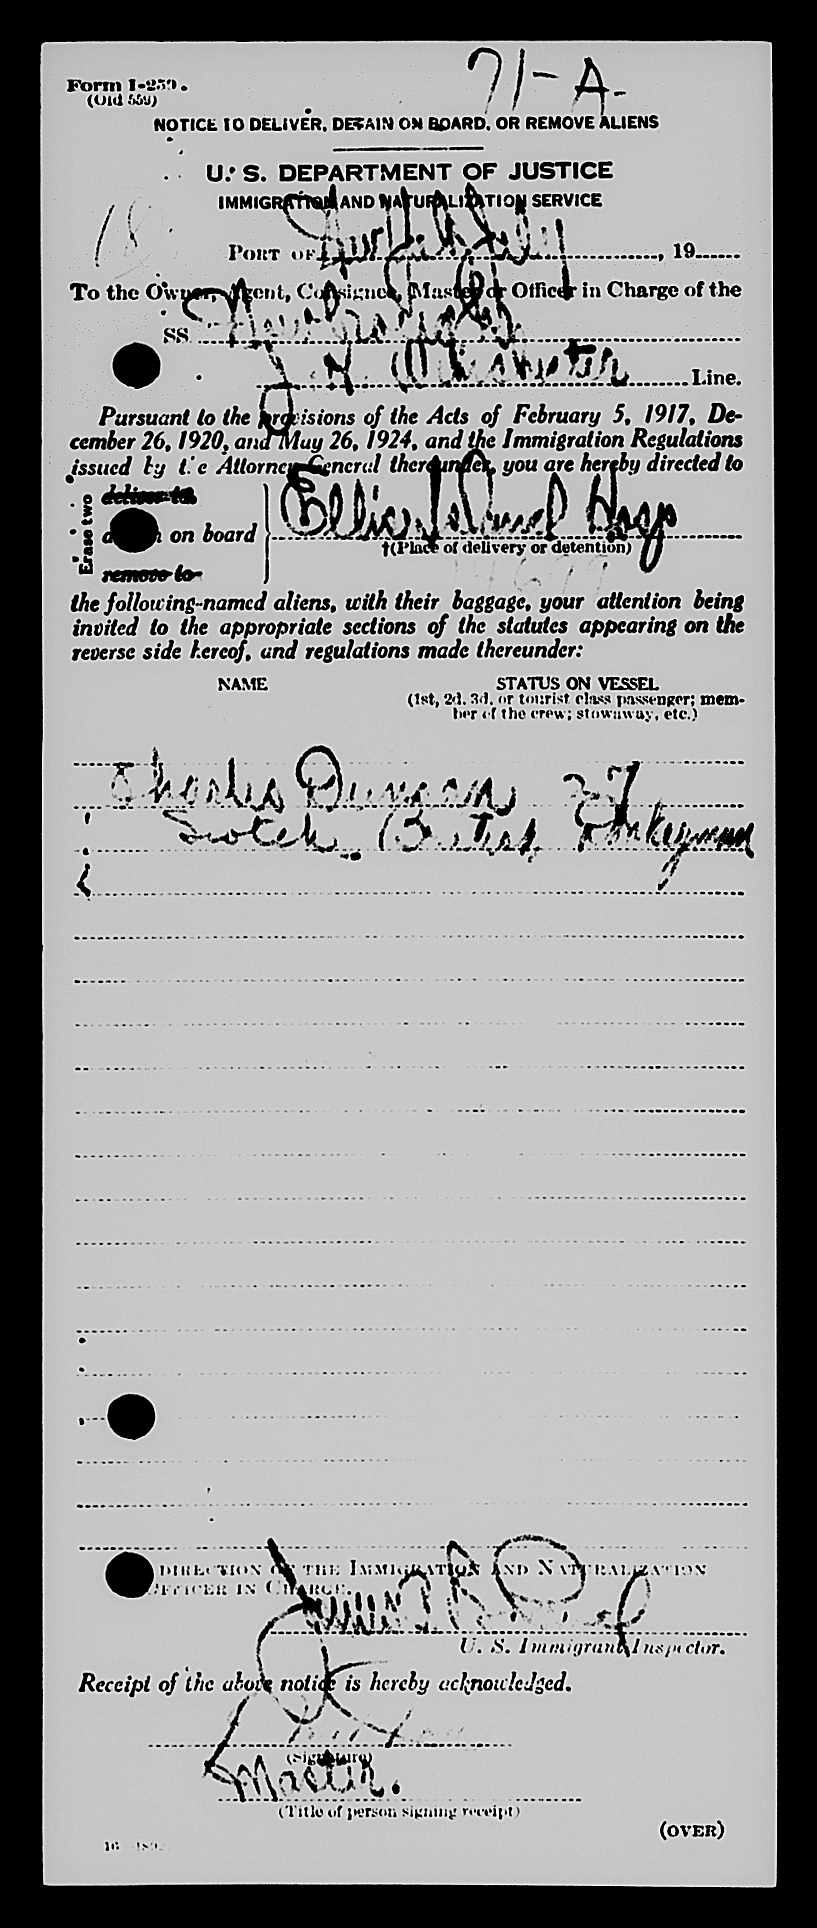 71-A-
Form I-259.
(Old 559)
NOTICE TO DELIVER, DETAIN ON BOARD, OR REMOVE ALIENS
U. S. DEPARTMENT OF JUSTICE
IMMIGRATION AND NATURALIZATION SERVICE
18
PORT OF , 19
To the Owner, Agent, Consignee, Master or Officer in Charge of the
SS.
Line.
Pursuant to the provisions of the Acts of February 5, 1917, De-
cember 26, 1920, and May 26, 1924, and the Immigration Regulations
issued by the Attorney General thereunder, you are hereby directed to
Erase two
deliver to
on board
Ellis Island Hosp
†(Place of delivery or detention)
remove to
the following-named aliens, with their baggage, your attention being
invited to the appropriate sections of the statutes appearing on the
reverse side hereof, and regulations made thereunder:
NAME STATUS ON VESSEL
(1st, 2d, 3d, or tourist class passenger; mem-
ber of the crew; stowaway, etc.)
Charles Duncan 27
Scotch British Donkeyman
DIRECTION OF THE IMMIGRATION AND NATURALIZATION
OFFICER IN CHARGE.
U. S. Immigrant Inspector.
Receipt of the above notice is hereby acknowledged.
(Signature)
Master.
(Title of person signing receipt)
(OVER)